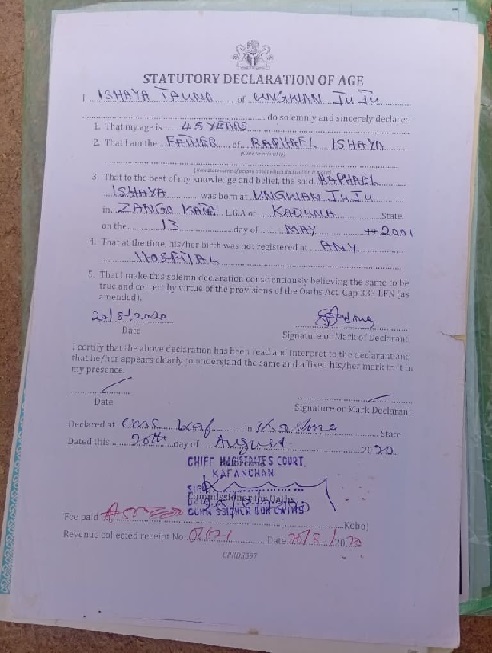 STATUTORY DECLARATION OF AGE
I ISHAYA of UNGWAN JuJu
do solemnly and sincerely declare
1. That my age is 45 YEARS
2. That I am the FATHER of RAPHAEL ISHAYA
3. That to the best of my knowledge and belief, the said RAPHAEL
ISHAYA was born at UNGWAN JuJu
in ZANGO KATAF L.G.A of KADUNA State
on the 13 day of MAY 2001
4. That at the time, his/her birth was not registered at ANY
HOSPITAL
5. That I make this solemn declaration conscientiously believing the same to be
true and by virtue of the provisions of the Oaths Act, Cap LFN (as
amended).
Date
Signature or Mark of Declarant
I certify that the above declaration has been read and interpret to the declarant and
that he/she appears clearly to understand the same and affixes his/her mark to it in
my presence.
Date
Signature or Mark Declaran
Declared at in Kaduna State
Dated this 20th day of August 2020
CHIEF MAGISTRATES COURT,
KAFANCHAN
Commissioner for Oaths
Fee paid Kobo)
Revenue collected receipt No. Date 2020